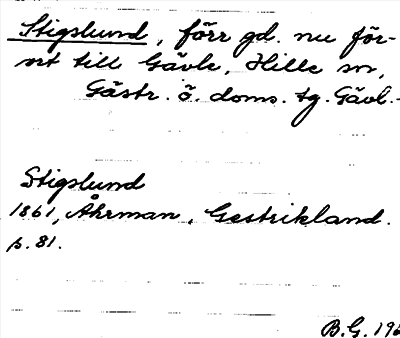 Stigslund, förr gd. nu för-
ort till Gävle, Hille sn,
Gästr. ö. doms. tg. Gävl.
Stigslund
1861, Åhrman, Gestrikland.
p. 81.
B.G. 196